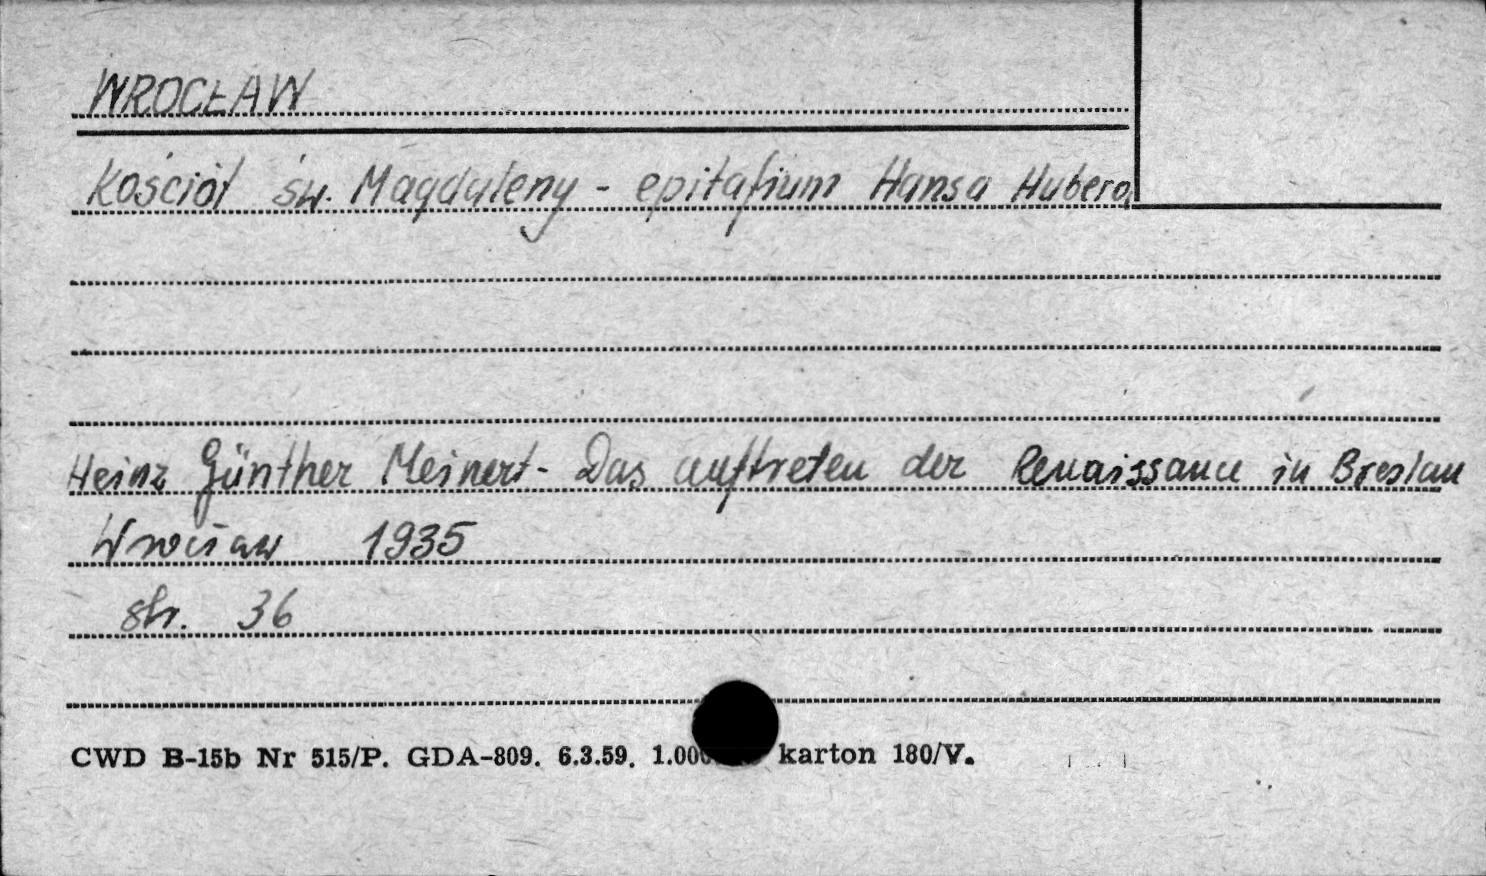 WROCŁAW
Kościół św. Magdaleny - epitafium Hansa Hubera
Heinz Günther Meinert - Das auftreten der Renaissance in Breslau
Wrocław 1935
str. 36
CWD B-15b Nr 515/P. GDA-809. 6.3.59. 1.00 karton 180/V.